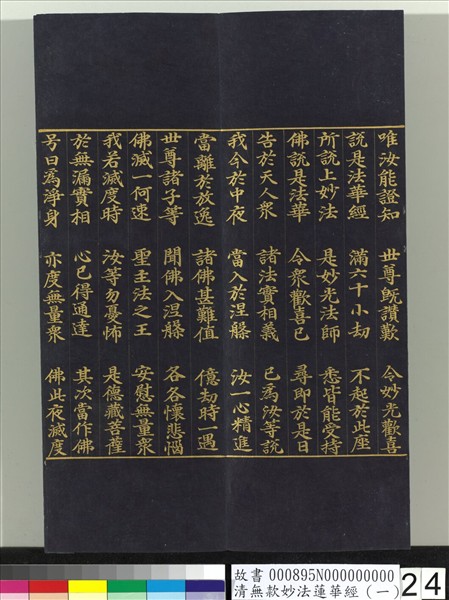 唯汝能證知　世尊既讚歎　令妙光歡喜
說是法華經　滿六十小劫　不起於此座
所說上妙法　是妙光法師　悉皆能受持
佛說是法華　令衆歡喜已　尋即於是日
告於天人衆　諸法實相義　已為汝等說
我今於中夜　當入於涅槃　汝一心精進
當離於放逸　諸佛甚難值　億劫時一遇
世尊諸子等　聞佛入涅槃　各各懷悲惱
佛滅一何速　聖主法之王　安慰無量衆
我若滅度時　汝等勿憂怖　是德藏菩薩
於無漏實相　心已得通達　其次當作佛
号曰為淨身　亦度無量衆　佛此夜滅度
故書 000895N000000000
清無款妙法蓮華經（一）
24